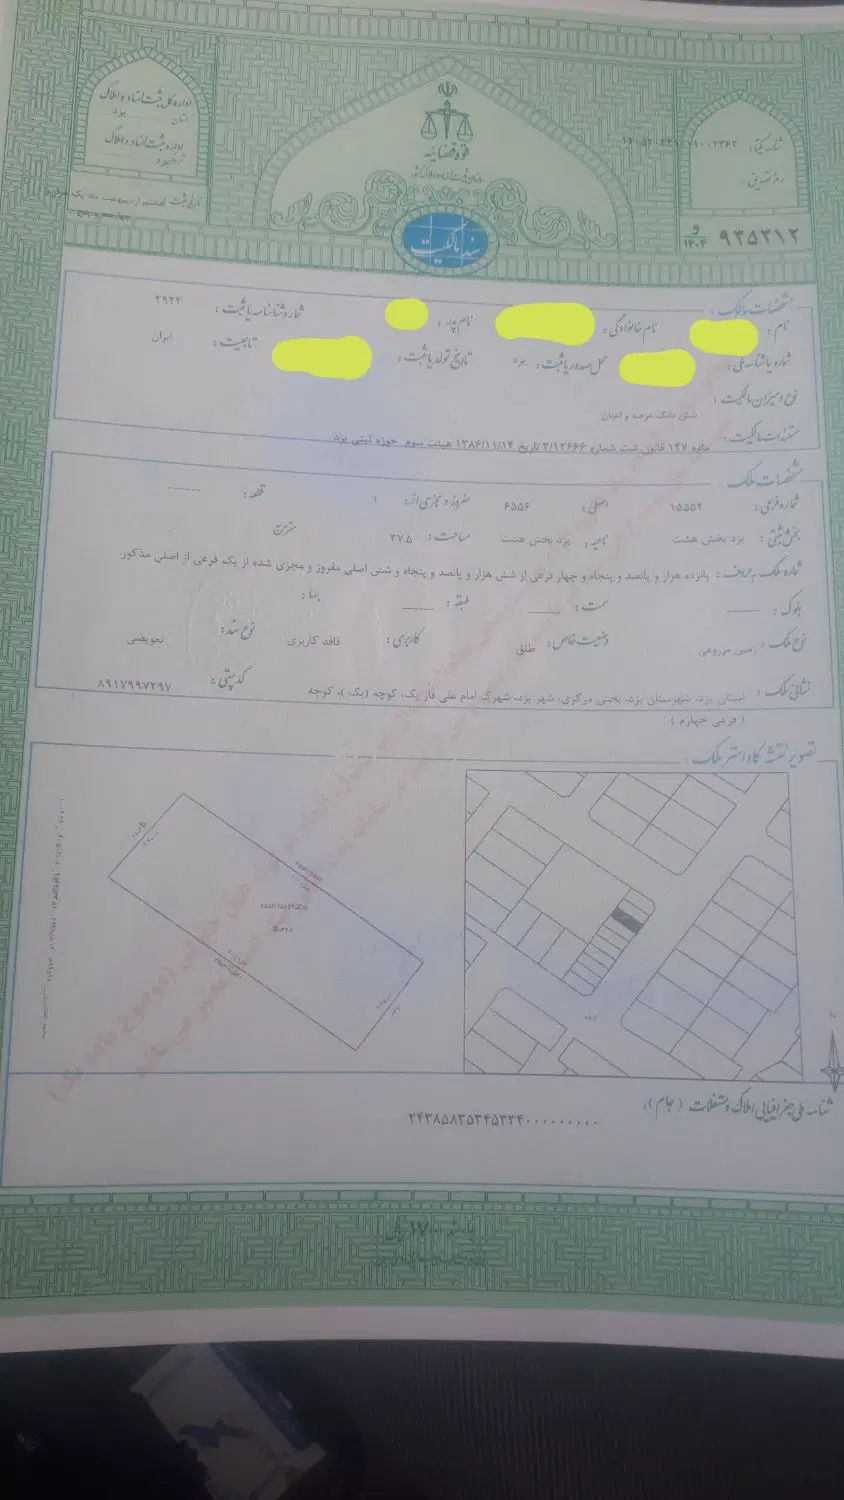 اداره کل ثبت اسناد و املاک
استان یزد
اداره ثبت اسناد و املاک
قوه قضائیه
سازمان ثبت اسناد و املاک کشور
شناسه یکتا:
رمز تصدیق:
تاریخ ثبت
۹۳۵۳۱۲ و ۱۴۰۴
سند مالکیت
مشخصات مالک:
نام: نام خانوادگی: نام پدر: شماره شناسنامه یا ثبت: ۲۹۲۲
شماره یا شناسه ملی: محل صدور یا ثبت: یزد تاریخ تولد یا ثبت: تابعیت: ایران
نوع و میزان مالکیت:
شش دانگ عرصه و اعیان
مستندات مالکیت: ماده ۱۴۷ قانون ثبت شماره ۳/۱۲۶۶۶ تاریخ ۱۳۸۶/۱۱/۱۴ هیئت سوم حوزه ثبتی یزد
مشخصات ملک:
شماره فرعی: ۱۵۵۵۴ اصلی: ۶۵۵۶ مفروز و مجزی از: ۱ قطعه: ------
بخش ثبتی: یزد بخش هشت ناحیه: یزد بخش هشت مساحت: ۲۷.۵ مترمربع
شماره ملک به حروف: پانزده هزار و پانصد و پنجاه و چهار فرعی از شش هزار و پانصد و پنجاه و شش اصلی مفروز و مجزی شده از یک فرعی از اصلی مذکور.
بلوک: ------ سمت: ------ طبقه: ------ بها:
نوع ملک: زمین مزروعی وضعیت خاص: طلق کاربری: فاقد کاربری نوع سند: تعویضی
نشانی ملک: استان یزد، شهرستان یزد، بخش مرکزی، شهر یزد، شهرک امام علی فاز یک، کوچه (یک)، کوچه کد پستی: ۸۹۱۷۹۹۷۲۹۷
( فرعی چهارم )
تصویر نقشه کاداستر ملک:
N
شناسه ملی جغرافیایی املاک و مستغلات (جام):
۲۴۳۸۵۸۳۵۳۴۵۳۳۴۰۰۰۰۰۰۰۰۰